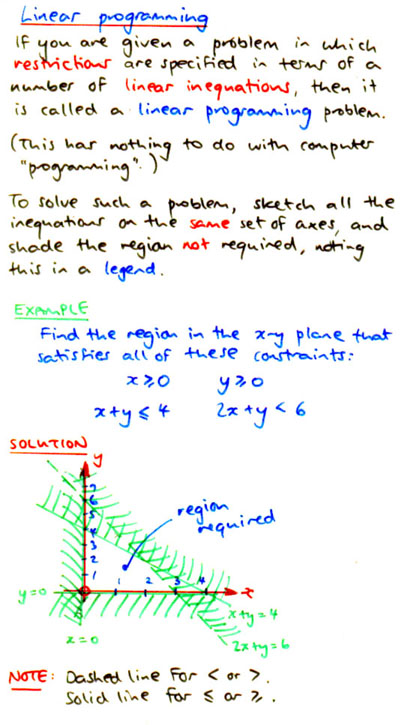 Linear programming
If you are given a problem in which
restrictions are specified in terms of a
number of linear inequations, then it
is called a linear programming problem.
(This has nothing to do with computer
"programming".)
To solve such a problem, sketch all the
inequations on the same set of axes, and
shade the region not required, noting
this in a legend.
EXAMPLE
Find the region in the x-y plane that
satisfies all of these constraints:
x ≥ 0 y ≥ 0
x + y ≤ 4 2x + y < 6
SOLUTION
y
7
6
5
4
3
2
1
region
required
1 2 3 4
x
y = 0
x + y = 4
x = 0
2x + y = 6
NOTE: Dashed line for < or >.
Solid line for ≤ or ≥.